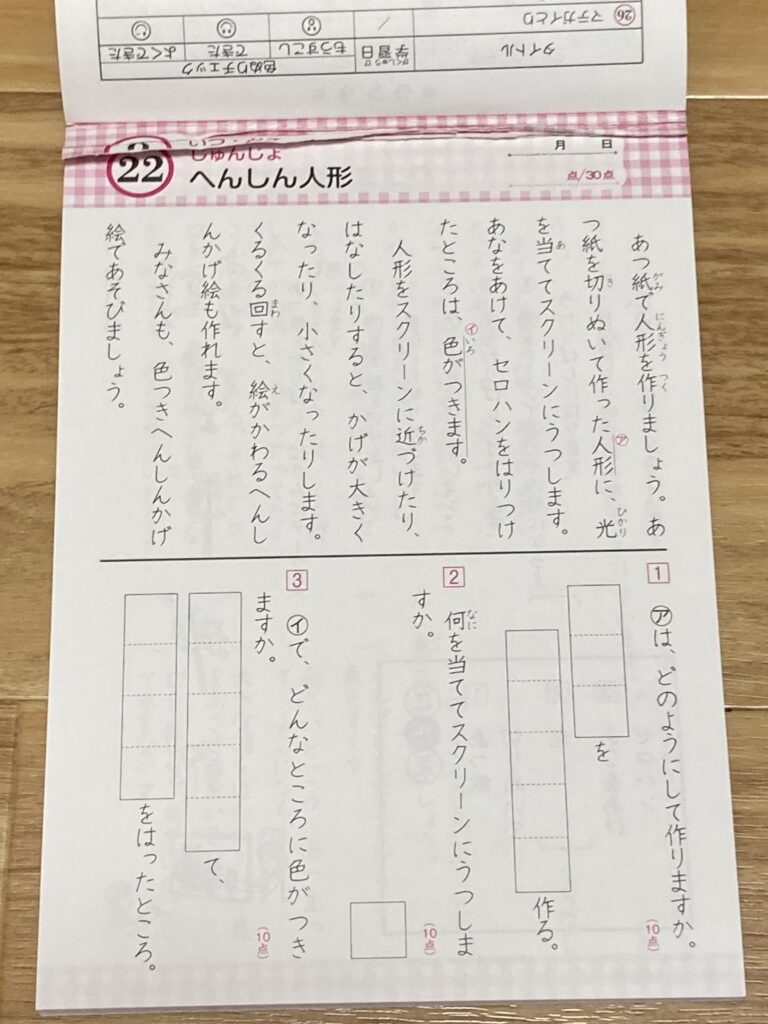 タイトル
学習日
がくしゅうび
色ぬりチェック
もうすこし
できた
よくできた
26 マテガイとり
/
22
しゅんじょ
へんしん人形
月 日
点/30点
あつ紙で人形を作りましょう。あ
がみ にんぎょう つく
つ紙を切りぬいて作った人形に、光
き ㋐ ひかり
を当ててスクリーンにうつします。
あ
あなをあけて、セロハンをはりつけ
たところは、色がつきます。
㋑ いろ
人形をスクリーンに近づけたり、
ちか
はなしたりすると、かげが大きく
なったり、小さくなったりします。
くるくる回すと、絵がかわるへんし
まわ え
んかげ絵も作れます。
みなさんも、色つきへんしんかげ
絵であそびましょう。
1 ㋐は、どのようにして作りますか。
(10点)
を
作る。
2 何を当ててスクリーンにうつしま
なに
すか。
(10点)
3 ㋑で、どんなところに色がつき
ますか。
(10点)
て、
をはったところ。